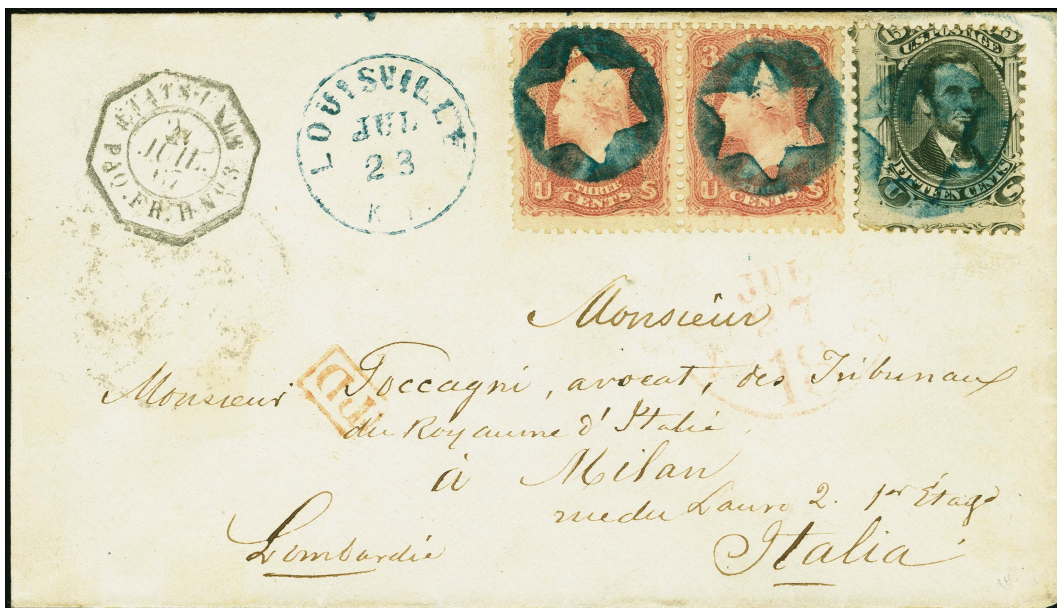 ETATS-UNIS
JUIL.
67
P. SOR. FR. H No 3
LOUISVILLE
JUL
23
KY.
3
3
U THREE CENTS S
U CENTS S
15
U.S. POSTAGE
FIFTEEN CENTS
U S
JUL
27
PD
Monsieur
Monsieur Toccagni, avocat, des Tribunaux
du Royaume d'Italie
à Milan
rue du Lauro 2. 1er Étage
Lombardie
Italia